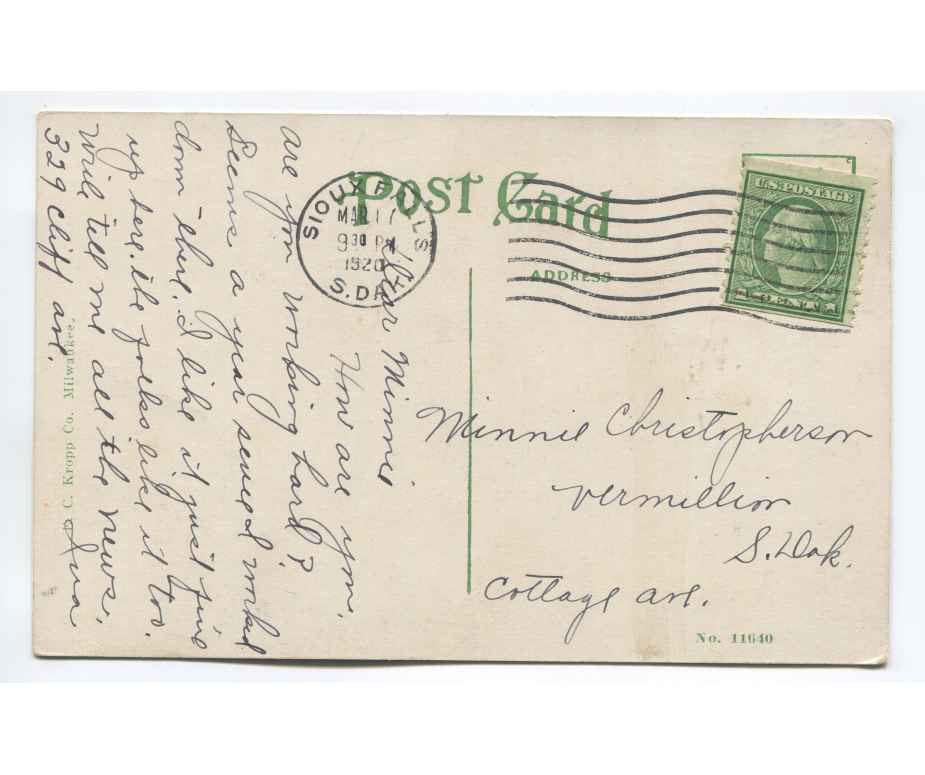 Post Card
ADDRESS
SIOUX FALLS
MAR 17
930 PM
1920
S.DAK.
U.S. POSTAGE
Dear Minnie
How are you.
are you working hard?
Seems a year sence I worked
down there. I like it just fine
up here. the folks like it too.
Will tell me all the news.
329 Cliff ave.
Minnie Christopherson
Vermillion
S.Dak.
Cottage ave.
E. C. Kropp Co. Milwaukee.
No. 11640